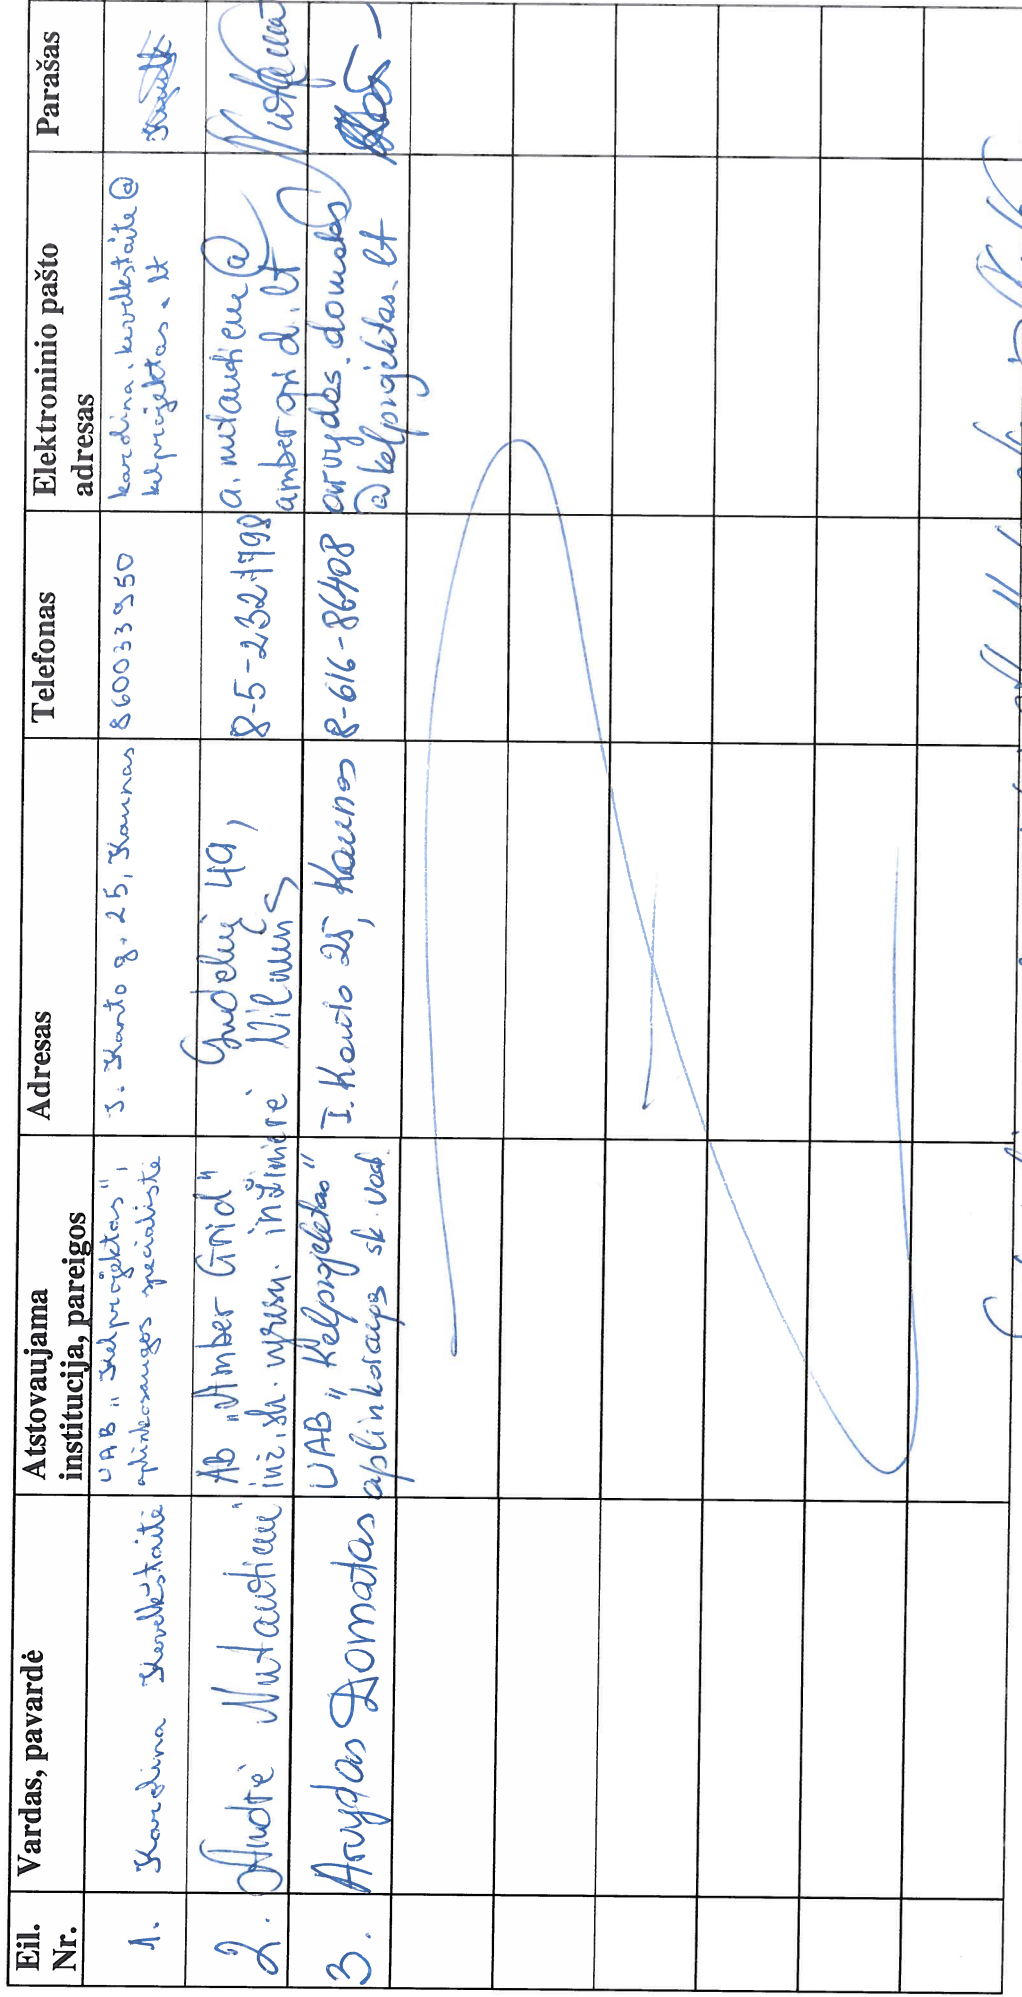 Eil. Nr. Vardas, pavardė Atstovaujama institucija, pareigos Adresas Telefonas Elektroninio pašto adresas Parašas
1. Karolina UAB „Kelprojektas", aplinkosaugos specialistė I. Kanto g. 25, Kaunas 860033950 kelprojektas.lt
2. Andrė AB „Amber Grid" inž. sk. vyresn. inžinierė Gudelių 49, Vilnius 8-5-2327798 ambergrid.lt
3. Arvydas Domatas UAB „Kelprojektas" aplinkosaugos sk. vad. I. Kanto 25, Kaunas 8-616-86408 arvydas.domatas @kelprojektas.lt